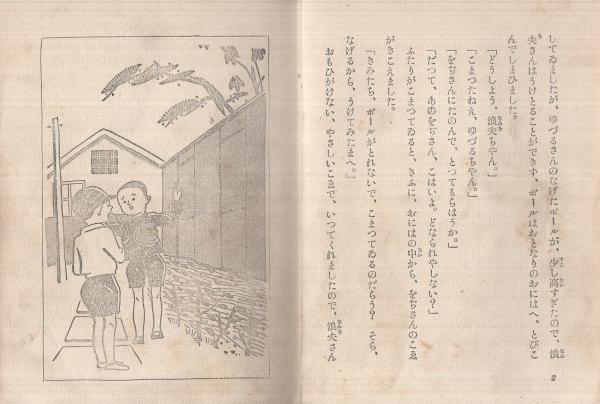 してゐましたが、ゆづるさんのなげたボールが、少し高すぎたので、浪
夫さんはうけとることができず、ボールはおとなりのおにはへ、とびこ
んでしまひました。
「どうしよう、浪夫ちやん。」
「こまつたねえ、ゆづるちやん。」
「をぢさんにたのんで、とつてもらはうか。」
「だつて、あのをぢさん、こはいよ。どなられやしない?」
ふたりがこまつてゐると、きふに、おにはの中から、をぢさんのこゑ
がきこえました。
「きみたち、ボールがとれないで、こまつてゐるのだらう? そら、
なげるから、うけてみたまへ。」
おもひがけない、やさしいこゑで、いつてくれましたので、浪夫さん
2